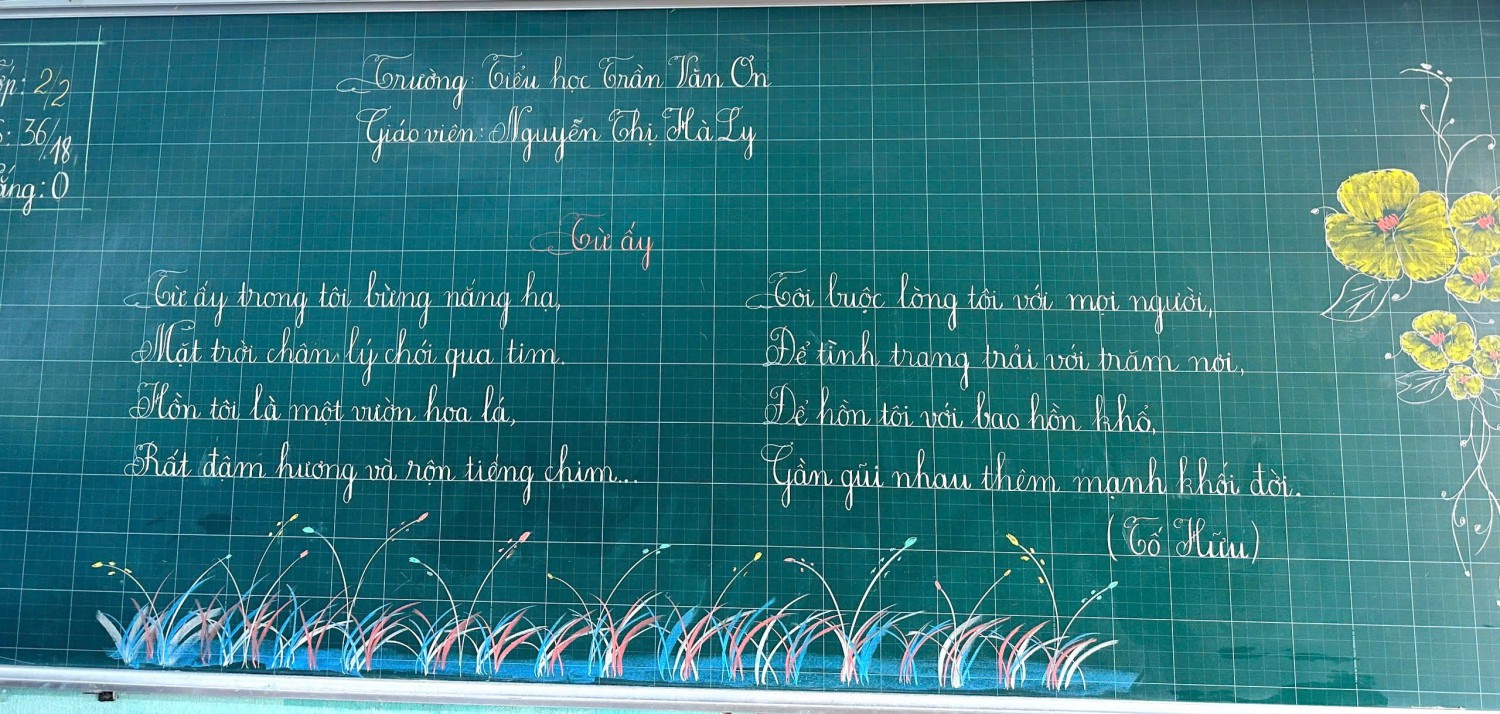 2/2
36/18
0
Trường: Tiểu học Trần Văn Ơn
Giáo viên: Nguyễn Thị Hà Ly
Từ ấy
Từ ấy trong tôi bừng nắng hạ,
Mặt trời chân lý chói qua tim.
Hồn tôi là một vườn hoa lá,
Rất đậm hương và rộn tiếng chim...
Tôi buộc lòng tôi với mọi người,
Để tình trang trải với trăm nơi,
Để hồn tôi với bao hồn khổ,
Gần gũi nhau thêm mạnh khối đời.
(Tố Hữu)